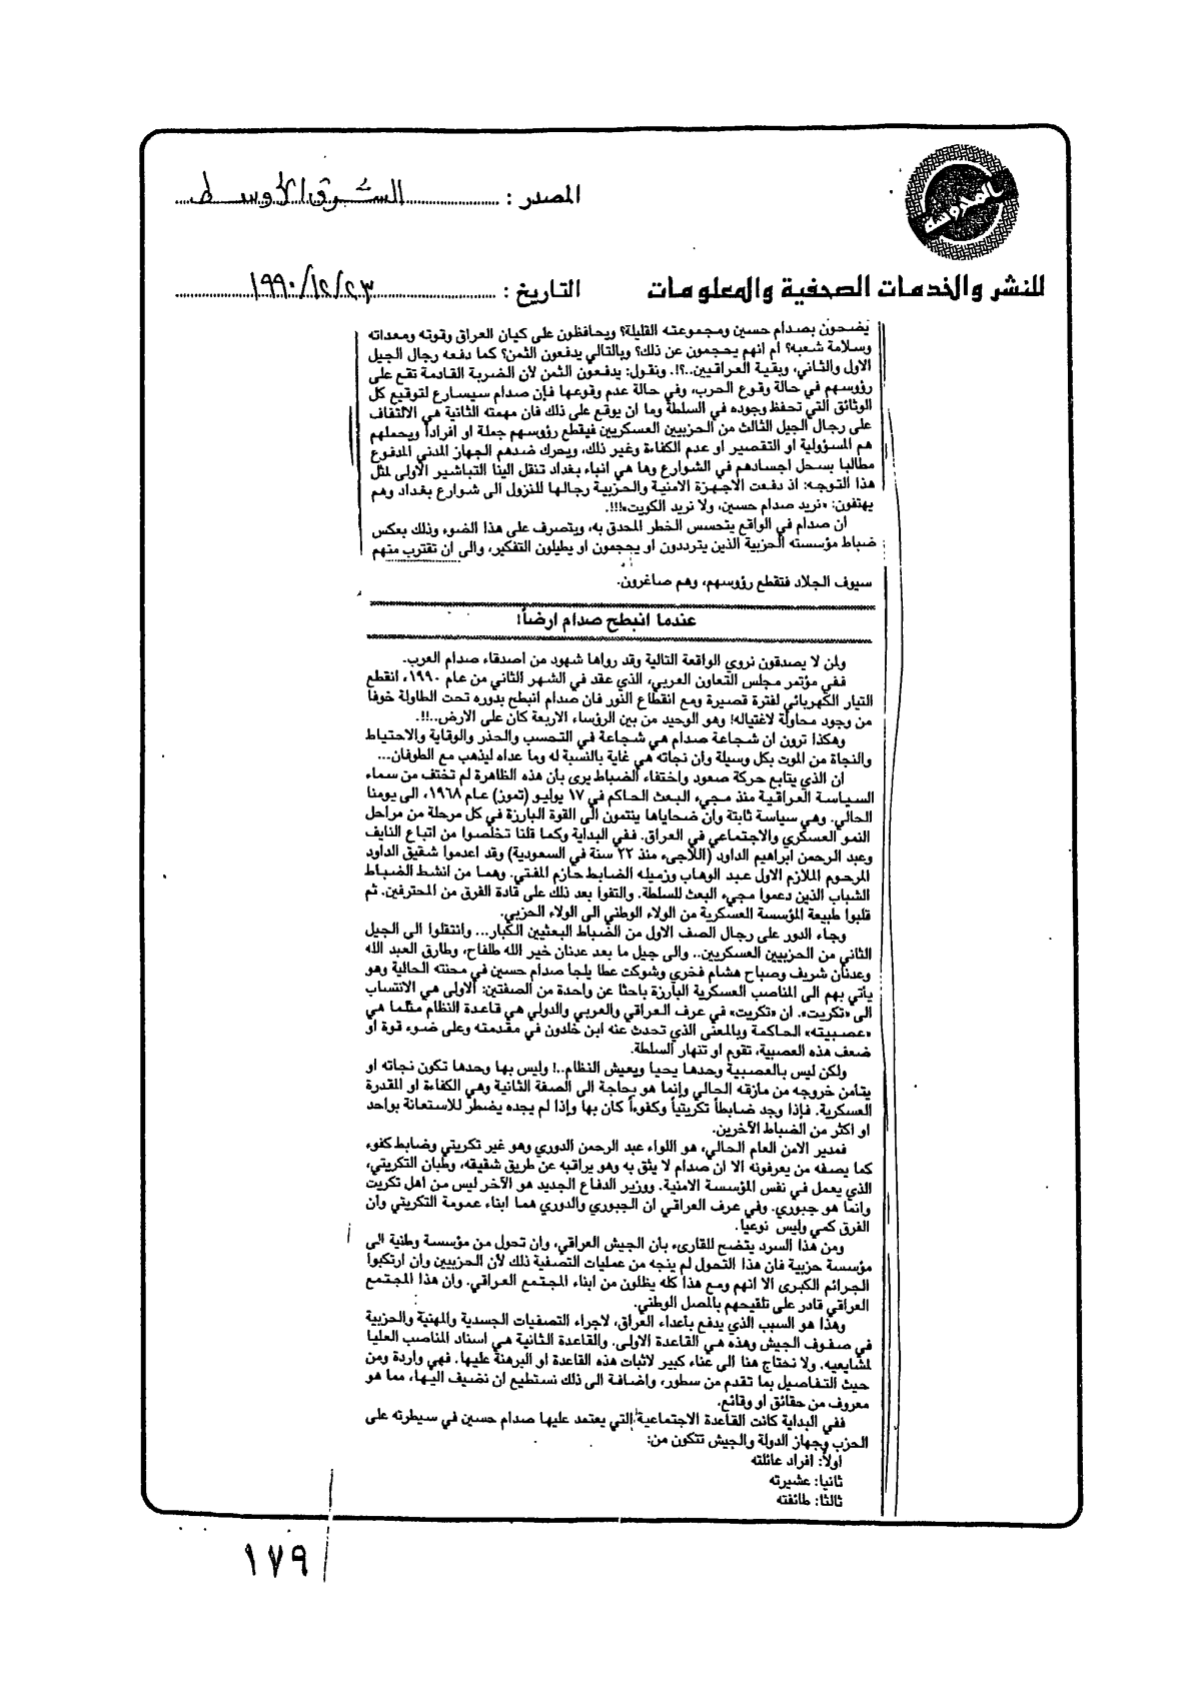 المصدر : الشرق الأوسط
للنشر والخدمات الصحفية والمعلومات
التاريخ : ١٩٩٠/١٢/٢٣
يضحون بصدام حسين ومجموعته القليلة؟ ويحافظون على كيان العراق وقوته ومعداته
وسلامة شعبه؟ ام انهم يحجمون عن ذلك؟ وبالتالي يدفعون الثمن؟ كما دفعه رجال الجيل
الاول والثاني، وبقية العراقيين..؟!. ونقول: يدفعون الثمن لأن الضربة القادمة تقع على
رؤوسهم في حالة وقوع الحرب، وفي حالة عدم وقوعها فإن صدام سيسارع لتوقيع كل
الوثائق التي تحفظ وجوده في السلطة وما ان يوقع على ذلك فان مهمته الثانية هي الالتفاف
على رجال الجيل الثالث من الحزبيين العسكريين فيقطع رؤوسهم جملة او افراداً ويحملهم
هم المسؤولية او التقصير او عدم الكفاءة وغير ذلك، ويحرك ضدهم الجهاز المدني المدفوع
مطالبا بسحل اجسادهم في الشوارع وها هي انباء بغداد تنقل الينا التباشير الاولى لمثل
هذا التوجه: اذ دفعت الاجهزة الامنية والحزبية رجالها للنزول الى شوارع بغداد وهم
يهتفون: «نريد صدام حسين، ولا نريد الكويت»!!!.
ان صدام في الواقع يتحسس الخطر المحدق به، ويتصرف على هذا الضوء وذلك بعكس
ضباط مؤسسته الحزبية الذين يترددون او يحجمون او يطيلون التفكير، والى ان تقترب منهم
سيوف الجلاد فتقطع رؤوسهم، وهم صاغرون.
عندما انبطح صدام ارضاً!
ولمن لا يصدقون نروي الواقعة التالية وقد رواها شهود من اصدقاء صدام العرب.
ففي مؤتمر مجلس التعاون العربي، الذي عقد في الشهر الثاني من عام ١٩٩٠، انقطع
التيار الكهربائي لفترة قصيرة ومع انقطاع النور فان صدام انبطح بدوره تحت الطاولة خوفا
من وجود محاولة لاغتياله! وهو الوحيد من بين الرؤساء الاربعة كان على الارض..!!.
وهكذا ترون ان شجاعة صدام هي شجاعة في التحسب والحذر والوقاية والاحتياط
والنجاة من الموت بكل وسيلة وان نجاته هي غاية بالنسبة له وما عداه ليذهب مع الطوفان...
ان الذي يتابع حركة صعود واختفاء الضباط يرى بأن هذه الظاهرة لم تختف من سماء
السياسة العراقية منذ مجيء البعث الحاكم في ١٧ يوليو (تموز) عام ١٩٦٨، الى يومنا
الحالي. وهي سياسة ثابتة وان ضحاياها ينتمون الى القوة البارزة في كل مرحلة من مراحل
النمو العسكري والاجتماعي في العراق. ففي البداية وكما قلنا تخلصوا من اتباع النايف
وعبد الرحمن ابراهيم الداود (اللاجىء منذ ٢٢ سنة في السعودية) وقد اعدموا شقيق الداود
المرحوم الملازم الاول عبد الوهاب وزميله الضابط حازم المفتي. وهما من انشط الضباط
الشباب الذين دعموا مجيء البعث للسلطة. والتفوا بعد ذلك على قادة الفرق من المحترفين. ثم
قلبوا طبيعة المؤسسة العسكرية من الولاء الوطني الى الولاء الحزبي.
وجاء الدور على رجال الصف الاول من الضباط البعثيين الكبار... وانتقلوا الى الجيل
الثاني من الحزبيين العسكريين.. والى جيل ما بعد عدنان خير الله طلفاح، وطارق العبد الله
وعدنان شريف وصباح هشام فخري وشوكت عطا يلجا صدام حسين في محنته الحالية وهو
يأتي بهم الى المناصب العسكرية البارزة باحثا عن واحدة من الصفتين: الاولى هي الانتساب
الى «تكريت». ان «تكريت» في عرف العراقي والعربي والدولي هي قاعدة النظام مثلما هي
«عصبيته» الحاكمة وبالمعنى الذي تحدث عنه ابن خلدون في مقدمته وعلى ضوء قوة او
ضعف هذه العصبية، تقوم او تنهار السلطة.
ولكن ليس بالعصبية وحدها يحيا ويعيش النظام..! وليس بها وحدها تكون نجاته او
يتأمن خروجه من مازقه الحالي وإنما هو بحاجة الى الصفة الثانية وهي الكفاءة او المقدرة
العسكرية. فإذا وجد ضابطاً تكريتياً وكفوءاً كان بها وإذا لم يجده يضطر للاستعانة بواحد
او اكثر من الضباط الآخرين.
فمدير الامن العام الحالي، هو اللواء عبد الرحمن الدوري وهو غير تكريتي وضابط كفوء
كما يصفه من يعرفونه الا ان صدام لا يثق به وهو يراقبه عن طريق شقيقه، وطبان التكريتي،
الذي يعمل في نفس المؤسسة الامنية. ووزير الدفاع الجديد هو الآخر ليس من اهل تكريت
وانما هو جبوري. وفي عرف العراقي ان الجبوري والدوري هما ابناء عمومة التكريتي وان
الفرق كمي وليس نوعيا.
ومن هذا السرد يتضح للقارىء بأن الجيش العراقي، وان تحول من مؤسسة وطنية الى
مؤسسة حزبية فان هذا التحول لم ينجه من عمليات التصفية ذلك لأن الحزبيين وان ارتكبوا
الجرائم الكبرى الا انهم ومع هذا كله يظلون من ابناء المجتمع العراقي. وان هذا المجتمع
العراقي قادر على تلقيحهم بالمصل الوطني.
وهذا هو السبب الذي يدفع باعداء العراق، لاجراء التصفيات الجسدية والمهنية والحزبية
في صفوف الجيش وهذه هي القاعدة الاولى. والقاعدة الثانية هي اسناد المناصب العليا
لمشايعيه. ولا نحتاج هنا الى عناء كبير لاثبات هذه القاعدة او البرهنة عليها. فهي واردة ومن
حيث التفاصيل بما تقدم من سطور، واضافة الى ذلك نستطيع ان نضيف اليها، مما هو
معروف من حقائق او وقائع.
ففي البداية كانت القاعدة الاجتماعية التي يعتمد عليها صدام حسين في سيطرته على
الحزب وجهاز الدولة والجيش تتكون من:
اولاً: افراد عائلته
ثانيا: عشيرته
ثالثا: طائفته
١٧٩